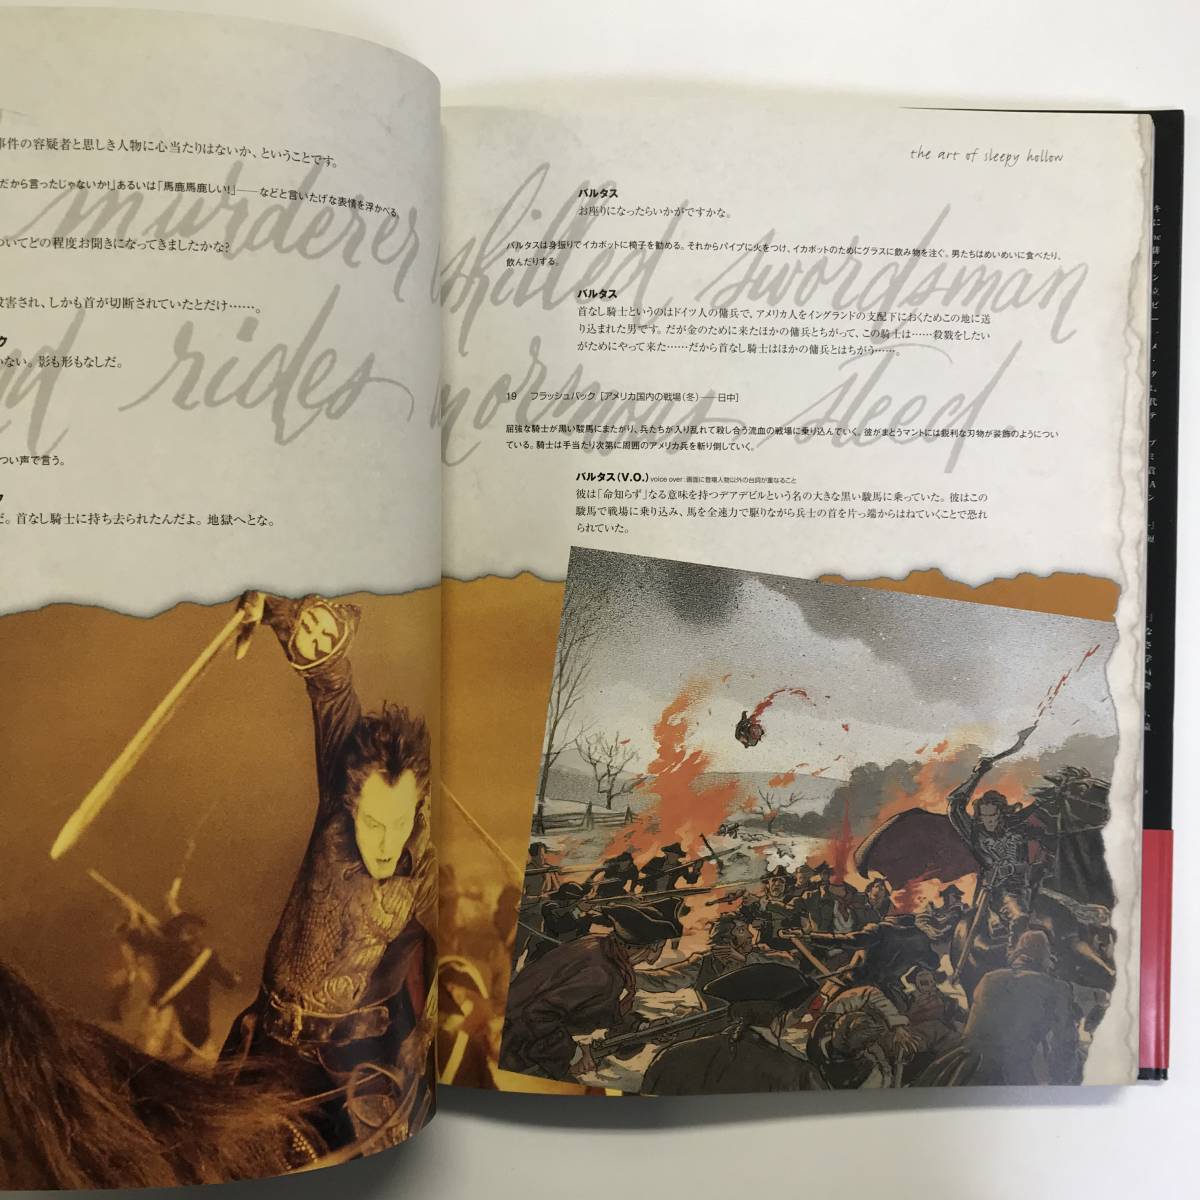 事件の容疑者と思しき人物に心当たりはないか、ということです。
だから言ったじゃないか!」あるいは「馬鹿馬鹿しい!」——などと言いたげな表情を浮かべる。
ついてどの程度お聞きになってきましたかな?
殺害され、しかも首が切断されていたとだけ……。
ク
いない。影も形もなしだ。
つい声で言う。
ク
だ。首なし騎士に持ち去られたんだよ。地獄へとな。
murderer skilled swordsman
rides enormous steed.
the art of sleepy hollow
バルタス
お座りになったらいかがですかな。
バルタスは身振りでイカボットに椅子を勧める。それからパイプに火をつけ、イカボットのためにグラスに飲み物を注ぐ。男たちはめいめいに食べたり、
飲んだりする。
バルタス
首なし騎士というのはドイツ人の傭兵で、アメリカ人をイングランドの支配下におくためこの地に送
り込まれた男です。だが金のために来たほかの傭兵とちがって、この騎士は……殺戮をしたい
がためにやって来た……だから首なし騎士はほかの傭兵とはちがう……。
19 フラッシュバック[アメリカ国内の戦場(冬)——日中]
屈強な騎士が黒い駿馬にまたがり、兵たちが入り乱れて殺し合う流血の戦場に乗り込んでいく。彼がまとうマントには鋭利な刃物が装飾のようについ
ている。騎士は手当たり次第に周囲のアメリカ兵を斬り倒していく。
バルタス(V.O.) voice over:画面に登場人物以外の台詞が重なること
彼は「命知らず」なる意味を持つデアデビルという名の大きな黒い駿馬に乗っていた。彼はこの
駿馬で戦場に乗り込み、馬を全速力で駆りながら兵士の首を片っ端からはねていくことで恐れ
られていた。